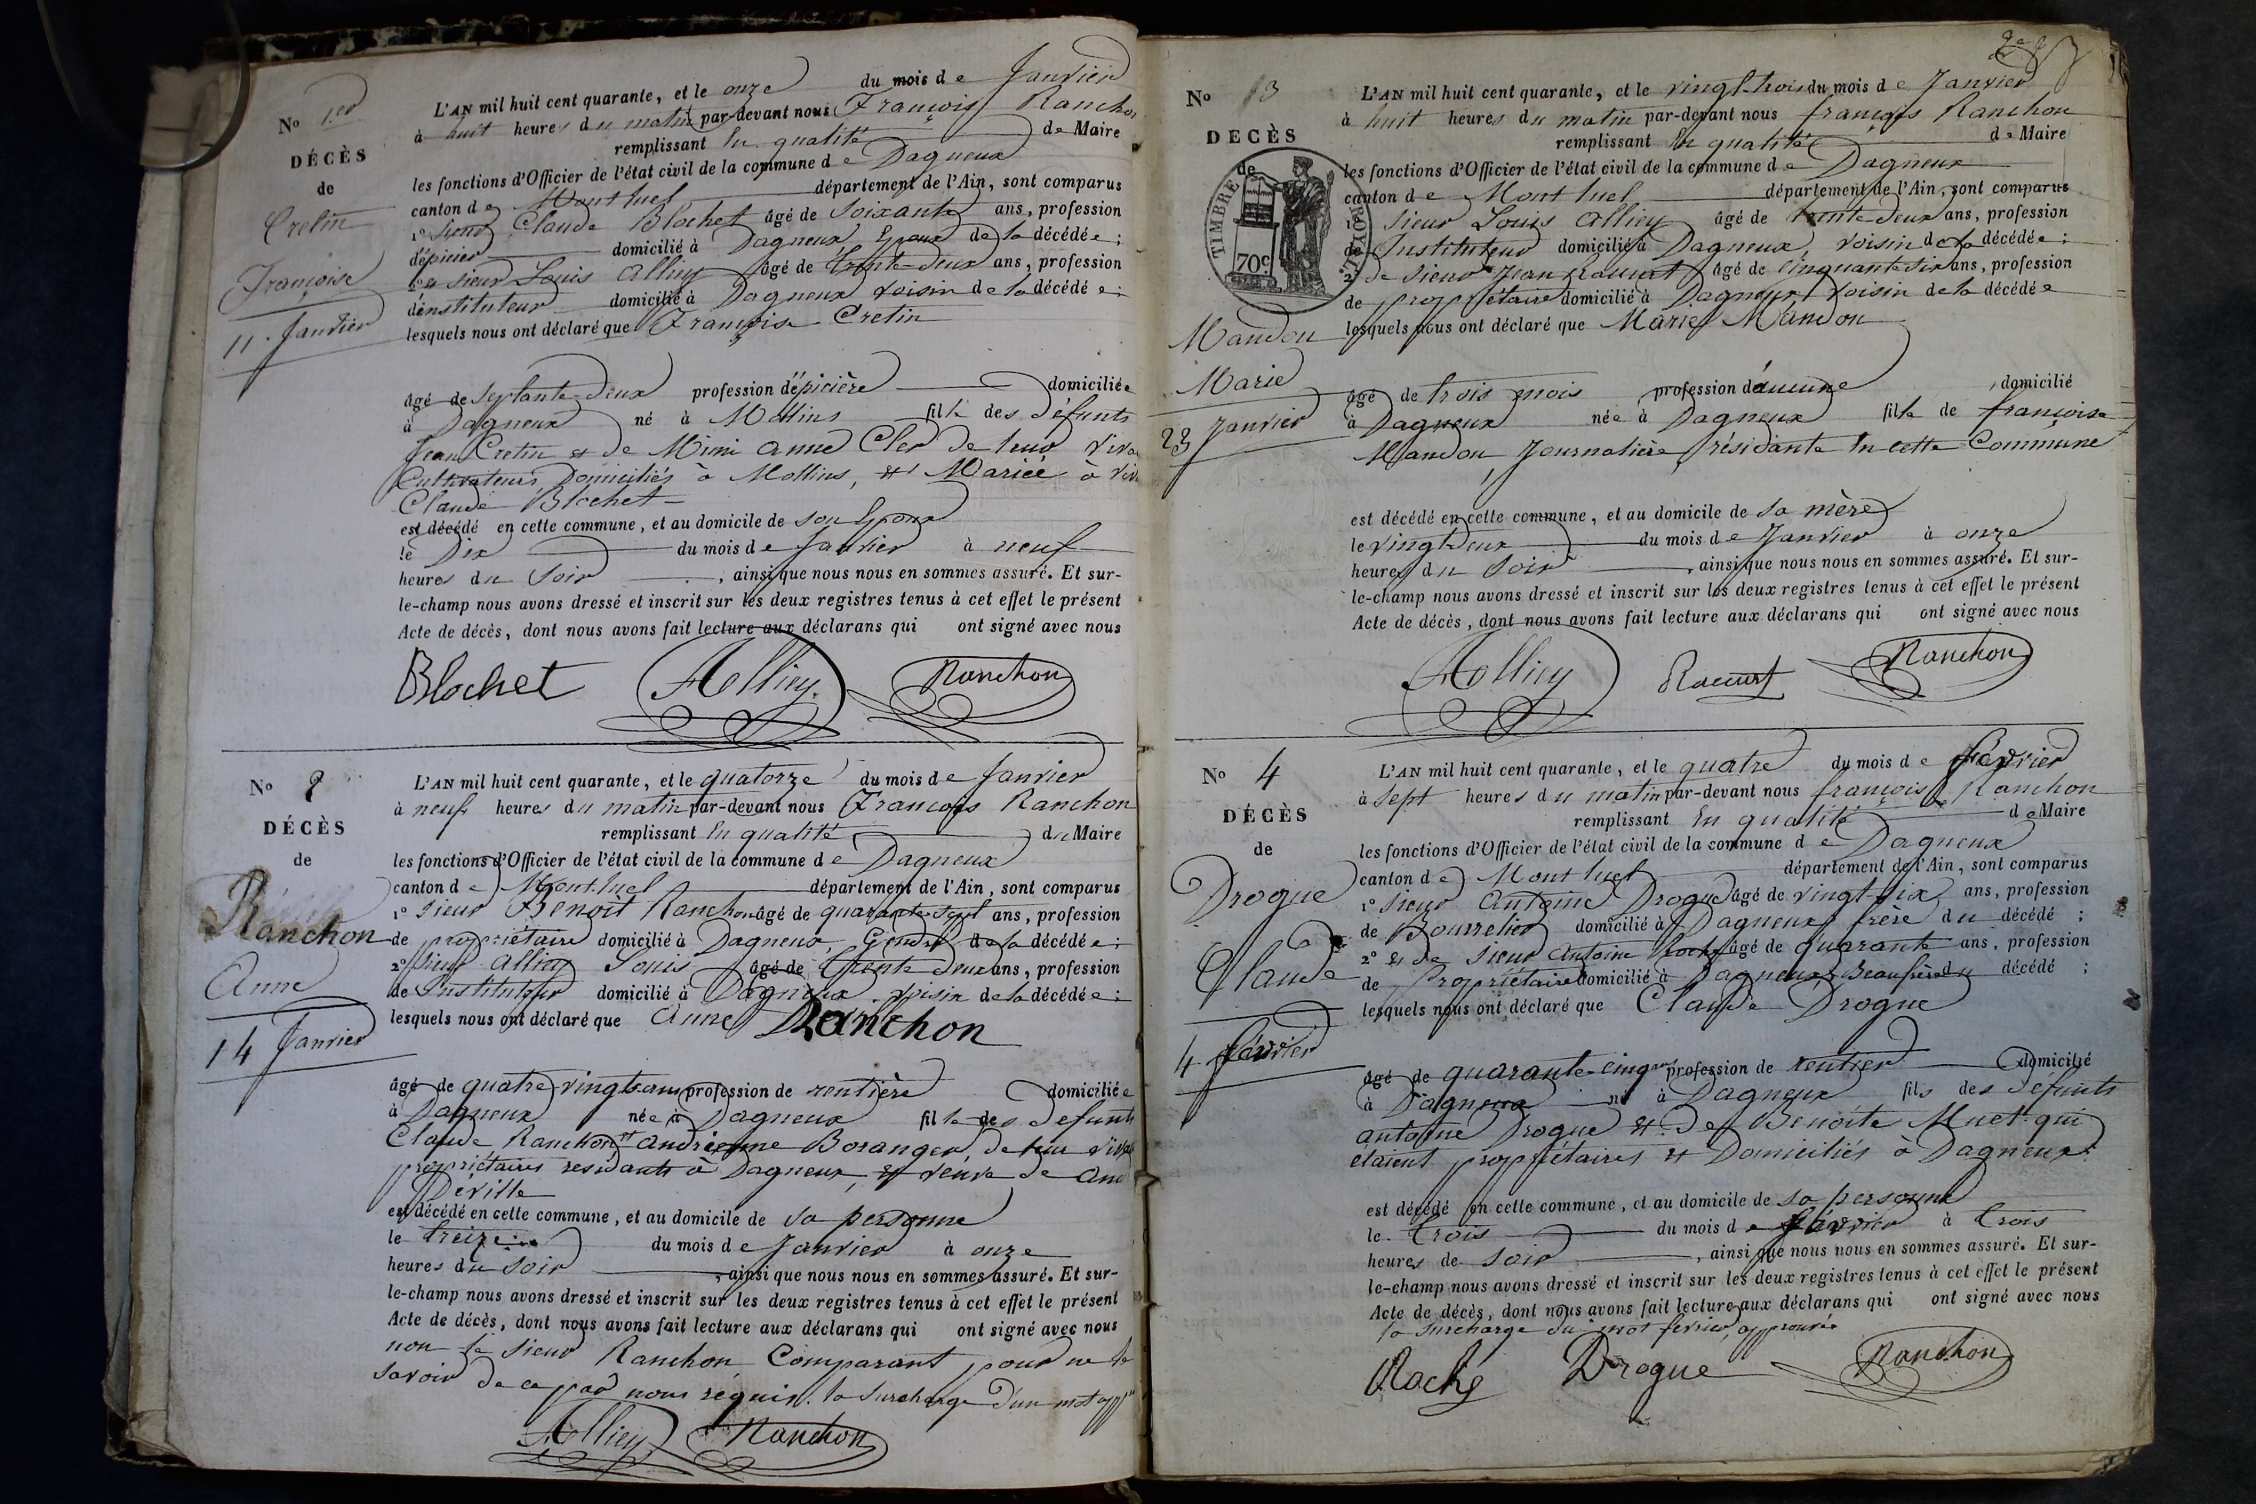 No 1er
DÉCÈS
de
Cretin
Françoise
11. Janvier
L'AN mil huit cent quarante, et le onze du mois de Janvier
à huit heures du matin par-devant nous François Ranchon
remplissant En qualité de Maire
les fonctions d'Officier de l'état civil de la commune de Dagneux
canton de Montluel département de l'Ain, sont comparus
1o Sieur Claude Blochet âgé de Soixante ans, profession
d'épicier domicilié à Dagneux Epoux de la décédée;
sieur Louis Alliey âgé de trente-deux ans, profession
d'instituteur domicilié à Dagneux voisin de la décédée;
lesquels nous ont déclaré que Françoise Cretin
âgé de Septante-Deux profession d'épicière domiciliée
à Dagneux né à Mollins fille des Défunts
Jean Cretin et de Mimi Anne Cler de leur
Cultivateurs Domiciliés à Mollins, et Mariée à
Claude Blochet
est décédé en cette commune, et au domicile de son Epoux
le Dix du mois de Janvier à neuf
heures du Soir, ainsi que nous nous en sommes assuré. Et sur-
le-champ nous avons dressé et inscrit sur les deux registres tenus à cet effet le présent
Acte de décès, dont nous avons fait lecture aux déclarans qui ont signé avec nous
Blochet Alliey Ranchon
No 2
DÉCÈS
de
Ranchon
Anne
14 Janvier
L'AN mil huit cent quarante, et le quatorze du mois de Janvier
à neuf heures du matin par-devant nous François Ranchon
remplissant En qualité du Maire
les fonctions d'Officier de l'état civil de la commune de Dagneux
canton de Montluel département de l'Ain, sont comparus
1o Sieur Benoit Ranchon âgé de quarante-sept ans, profession
de propriétaire domicilié à Dagneux, Gendre de la décédée;
2o Sieur Alliey Louis âgé de trente deux ans, profession
de Instituteur domicilié à Dagneux voisin de la décédée;
lesquels nous ont déclaré que Anne Ranchon
âgé de quatre-vingts ans profession de rentière domiciliée
à Dagneux née à Dagneux fille des Defunts
Claude Ranchon et Andrienne Boranger, de leur
propriétaires residants à Dagneux, et veuve de
Déville
est décédé en cette commune, et au domicile de sa personne
le treize du mois de Janvier à onze
heures du Soir, ainsi que nous nous en sommes assuré. Et sur-
le-champ nous avons dressé et inscrit sur les deux registres tenus à cet effet le présent
Acte de décès, dont nous avons fait lecture aux déclarans qui ont signé avec nous
non le sieur Ranchon Comparant, pour ne le
savoir de ce par nous réquis. la Surcharge d'un mot
Alliey Ranchon
No 3
DECÈS
de
TIMBRE ROYAL
70c
Mandon
Marie
23 Janvier
L'AN mil huit cent quarante, et le vingt-trois du mois de Janvier
à huit heures du matin par-devant nous françois Ranchon
remplissant En qualité de Maire
les fonctions d'Officier de l'état civil de la commune de Dagneux
canton de Montluel département de l'Ain, sont comparus
1o Sieur Louis Alliey âgé de trente-deux ans, profession
de Instituteur domicilié à Dagneux, voisin de la décédée;
2o de Sieur Jean Racurt âgé de cinquante six ans, profession
de propriétaire domicilié à Dagneux voisin de la décédée
lesquels nous ont déclaré que Marie Mandon
âgé de trois mois profession d'aucune domicilié
à Dagneux née à Dagneux fille de françoise
Mandon, Journalière, résidante En cette Commune
est décédé en cette commune, et au domicile de sa mère
le vingt-deux du mois de Janvier à onze
heures du Soir, ainsi que nous nous en sommes assuré. Et sur-
le-champ nous avons dressé et inscrit sur les deux registres tenus à cet effet le présent
Acte de décès, dont nous avons fait lecture aux déclarans qui ont signé avec nous
Alliey Racurt Ranchon
No 4
DÉCÈS
de
Drogue
Claude
4 février
L'AN mil huit cent quarante, et le quatre du mois de février
à sept heures du matin par-devant nous françois Ranchon
remplissant En qualité de Maire
les fonctions d'Officier de l'état civil de la commune de Dagneux
canton de Montluel département de l'Ain, sont comparus
1o Sieur Antoine Drogue âgé de vingt-six ans, profession
de Bourrelier domicilié à Dagneux, frère du décédé;
2o et de Sieur Antoine Roche âgé de quarante ans, profession
de Propriétaire domicilié à Dagneux, Beaufrère du décédé;
lesquels nous ont déclaré que Claude Drogue
âgé de quarante-cinq ans profession de rentier domicilié
à Dagneux né à Dagneux fils des Défunts
Antoine Drogue et de Benoite Muet qui
étaient propriétaires et Domiciliés à Dagneux
est décédé en cette commune, et au domicile de sa personne
le trois du mois de février à trois
heures de Soir, ainsi que nous nous en sommes assuré. Et sur-
le-champ nous avons dressé et inscrit sur les deux registres tenus à cet effet le présent
Acte de décès, dont nous avons fait lecture aux déclarans qui ont signé avec nous
la Surcharge du mot fevrier, approuvée
Roche Drogue Ranchon